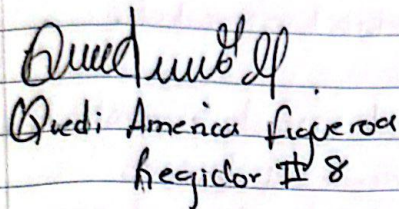 Quedi America figueroa
Regidor # 8